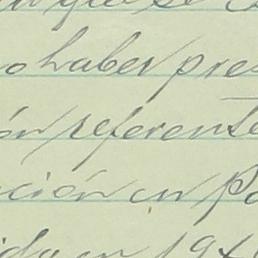 que se
haber pre
ón referente
ción en Po
da en 194